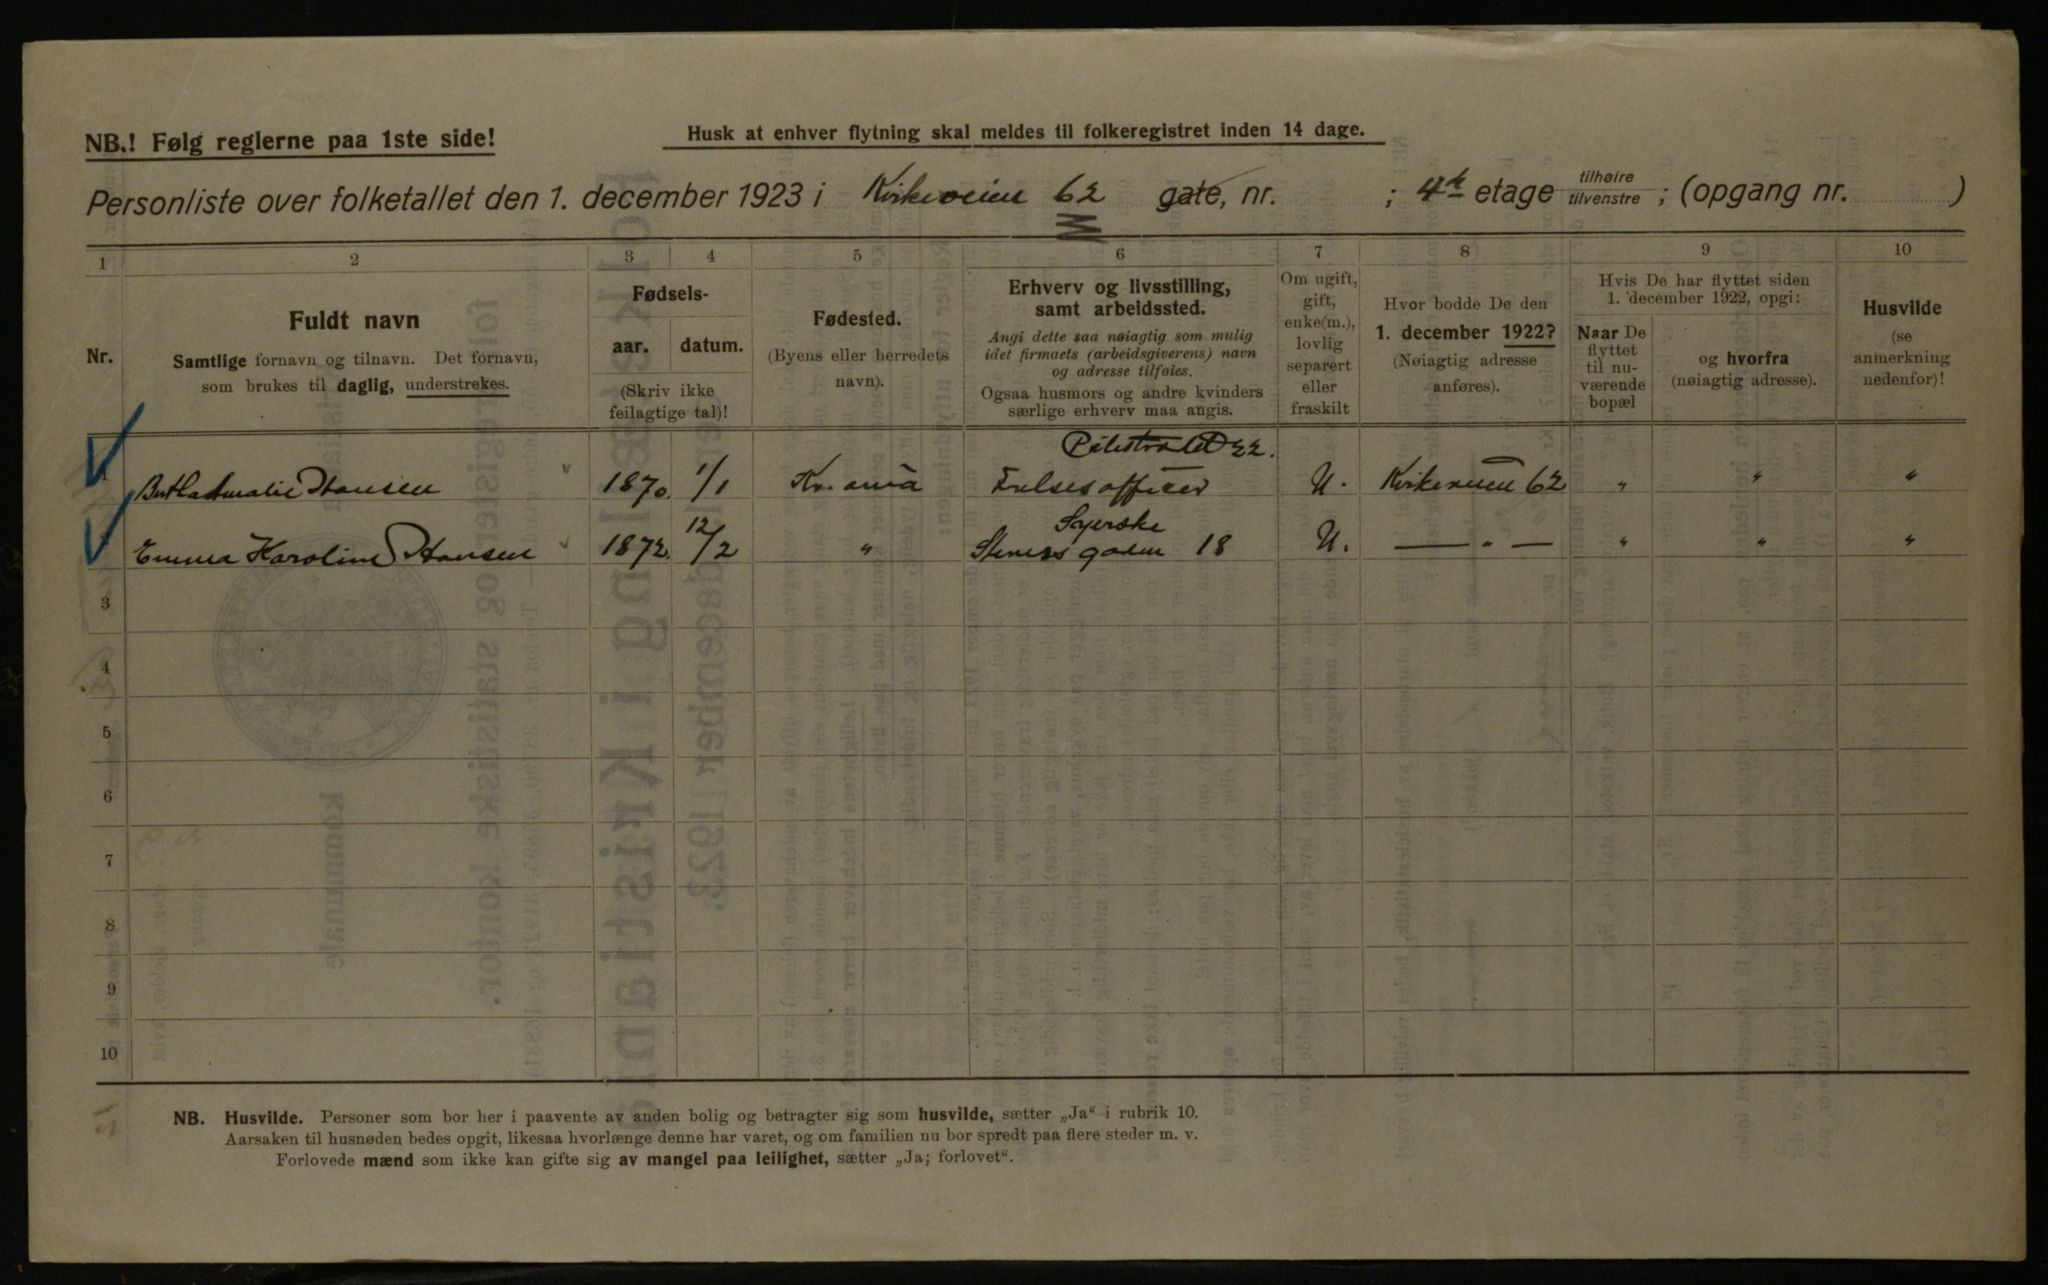 NB.! Følg reglerne paa 1ste side!
Husk at enhver flytning skal meldes til folkeregistret inden 14 dage.
Personliste over folketallet den 1. december 1923 i Kirkeveien 62 gate, nr. ; 4de etage tilhøire tilvenstre ; (opgang nr. )
1 2 3 4 5 6 7 8 9 10
Nr.
Fuldt navn
Samtlige fornavn og tilnavn. Det fornavn,
som brukes til daglig, understrekes.
Fødsels-
aar. datum.
(Skriv ikke
feilagtige tal)!
Fødested.
(Byens eller herredets
navn).
Erhverv og livsstilling,
samt arbeidssted.
Angi dette saa nøiagtig som mulig
idet firmaets (arbeidsgiverens) navn
og adresse tilføies.
Ogsaa husmors og andre kvinders
særlige erhverv maa angis.
Om ugift,
gift,
enke(m.),
lovlig
separert
eller
fraskilt
Hvor bodde De den
1. december 1922?
(Nøiagtig adresse
anføres).
Hvis De har flyttet siden
1. december 1922, opgi:
Naar De
flyttet
til nu-
værende
bopæl
og hvorfra
(nøiagtig adresse).
Husvilde
(se
anmerkning
nedenfor)!
Pilestrædet 22.
Bertha Amalie Hansen 1870. 1/1 Kr.ania Frelsesofficer U. Kirkeveien 62 " " "
Syerske
Emma Karoline Hansen 1872. 12/2 " Stenersgaden 18 U. — " — " " "
3
4
5
6
7
8
9
10
NB. Husvilde. Personer som bor her i paavente av anden bolig og betragter sig som husvilde, sætter „Ja“ i rubrik 10.
Aarsaken til husnøden bedes opgit, likesaa hvorlænge denne har varet, og om familien nu bor spredt paa flere steder m. v.
Forlovede mænd som ikke kan gifte sig av mangel paa leilighet, sætter „Ja; forlovet“.